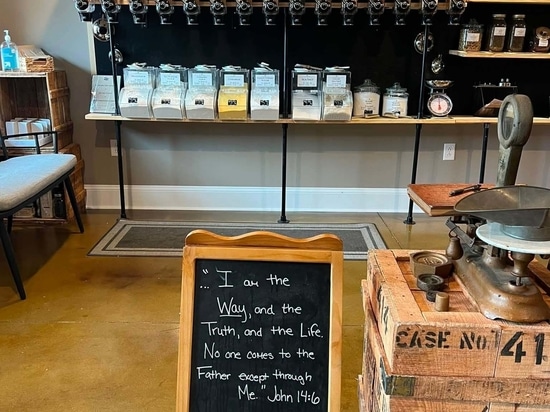 "... I am the
Way, and the
Truth, and the Life.
No one comes to the
Father except through
Me." John 14:6
CASE NO. 41